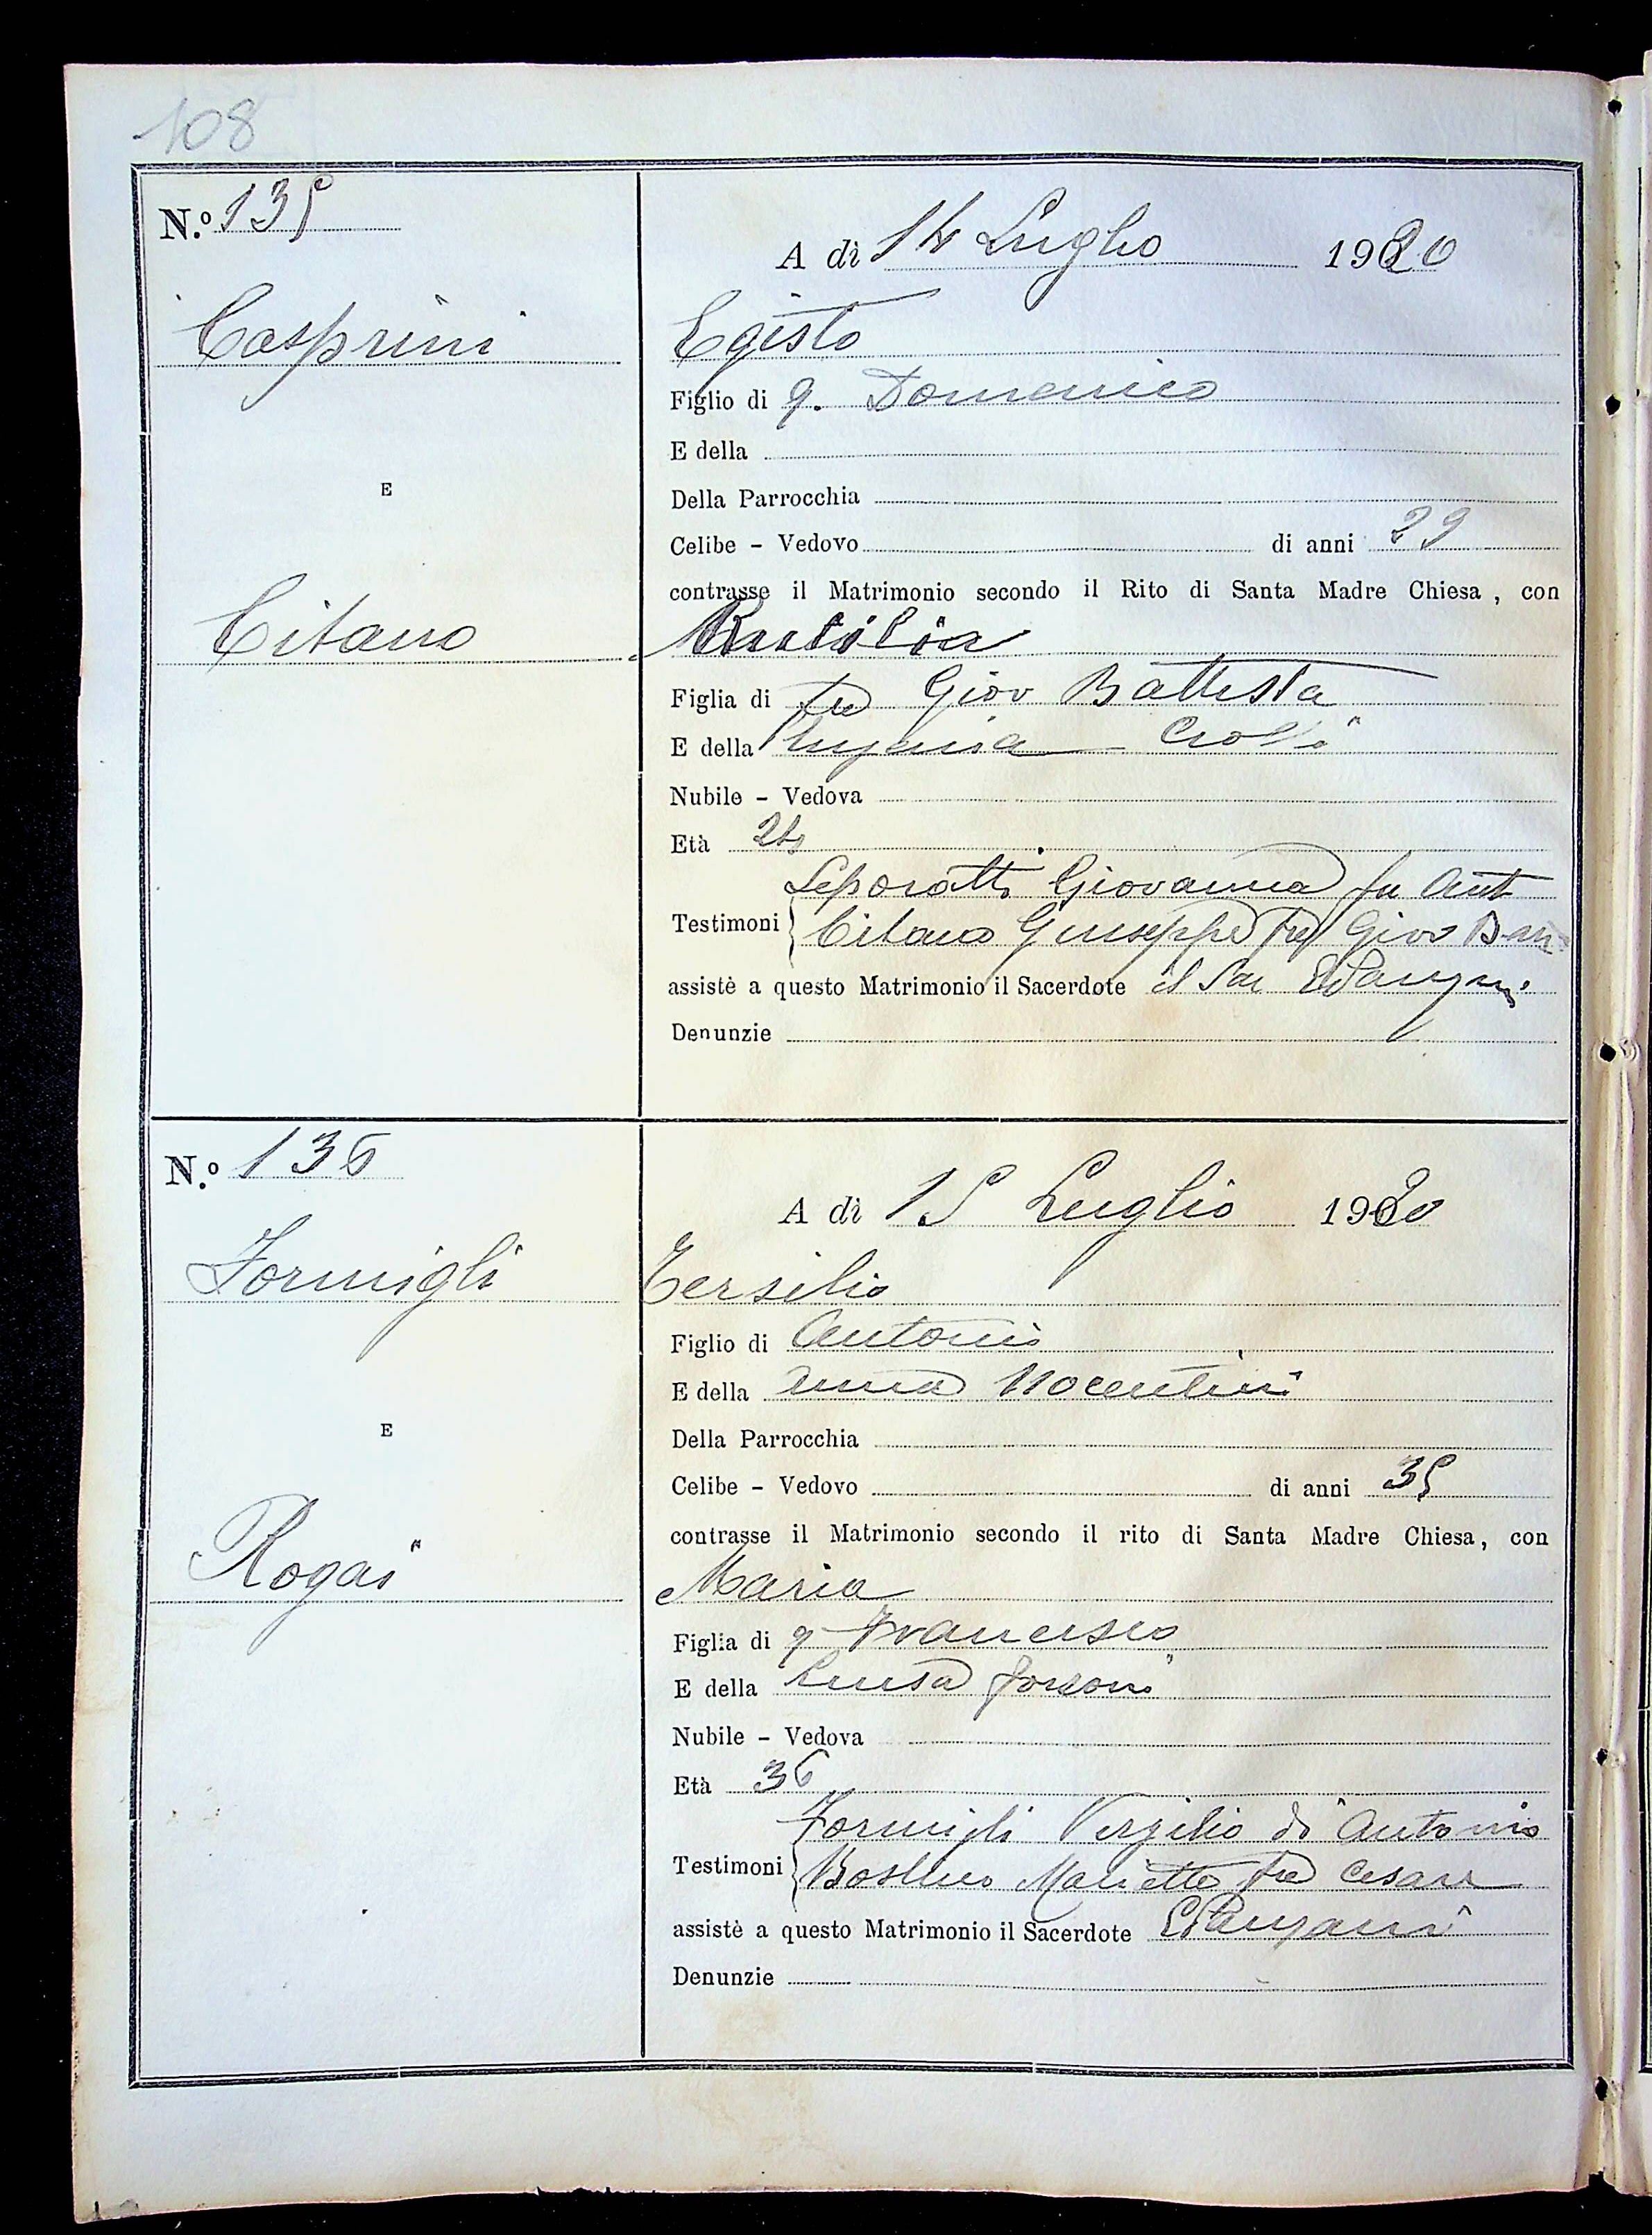 108
N.º 135
A dì 14 Luglio 1920
Casprini
Egisto
Figlio di q. Domenico
E della
Della Parrocchia
E
Celibe - Vedovo di anni 29
contrasse il Matrimonio secondo il Rito di Santa Madre Chiesa, con
Citano
Rutilia
Figlia di fu Giov Battista
E della
Nubile - Vedova
Età 24
Leporatti Giovanna fu Ant
Testimoni Citano Giuseppe fu Giov Ban
assistè a questo Matrimonio il Sacerdote il Sac E Panzani
Denunzie
N.º 136
A dì 15 Luglio 1920
Formigli
Tersilio
Figlio di Antonio
E della Anna Nocentini
E
Della Parrocchia
Celibe - Vedovo di anni 35
contrasse il Matrimonio secondo il rito di Santa Madre Chiesa, con
Rogai
Maria
Figlia di q Francesco
E della Luisa
Nubile - Vedova
Età 36
Formigli Vergilio di Antonio
Testimoni Marietta fu Cesare
assistè a questo Matrimonio il Sacerdote E Panzani
Denunzie